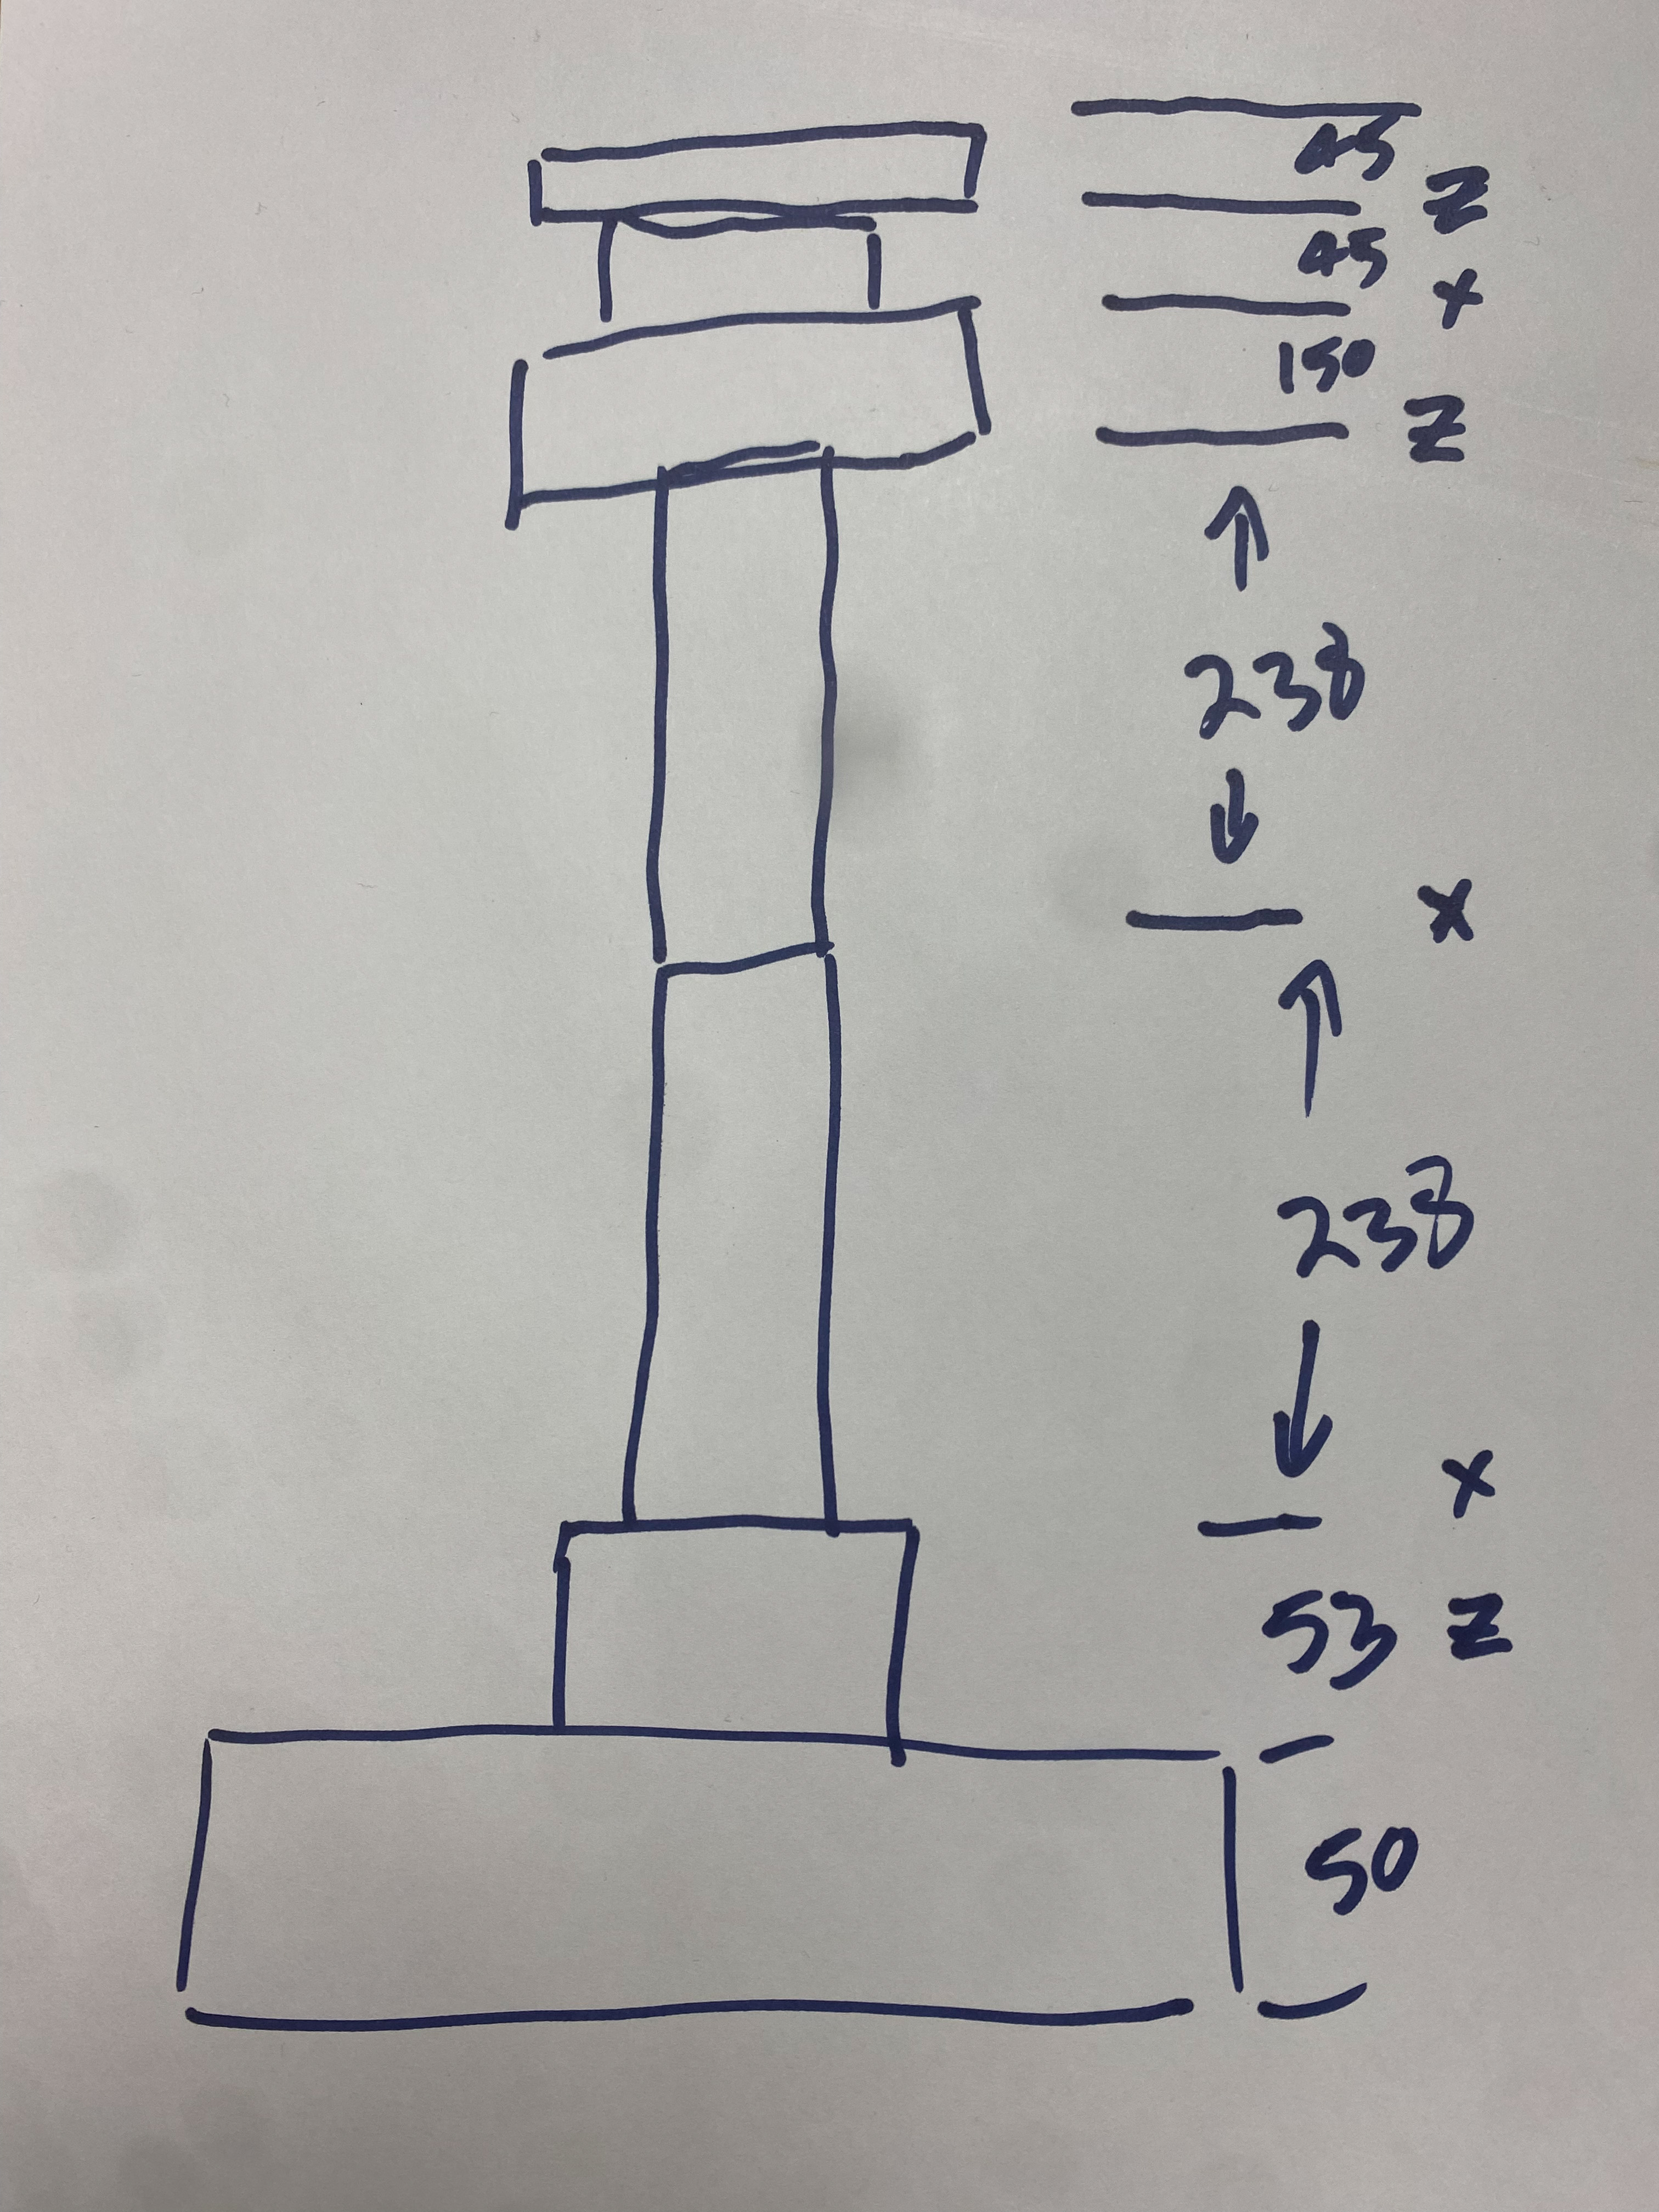 45
Z
45
x
150
Z
238
x
238
x
53 Z
50